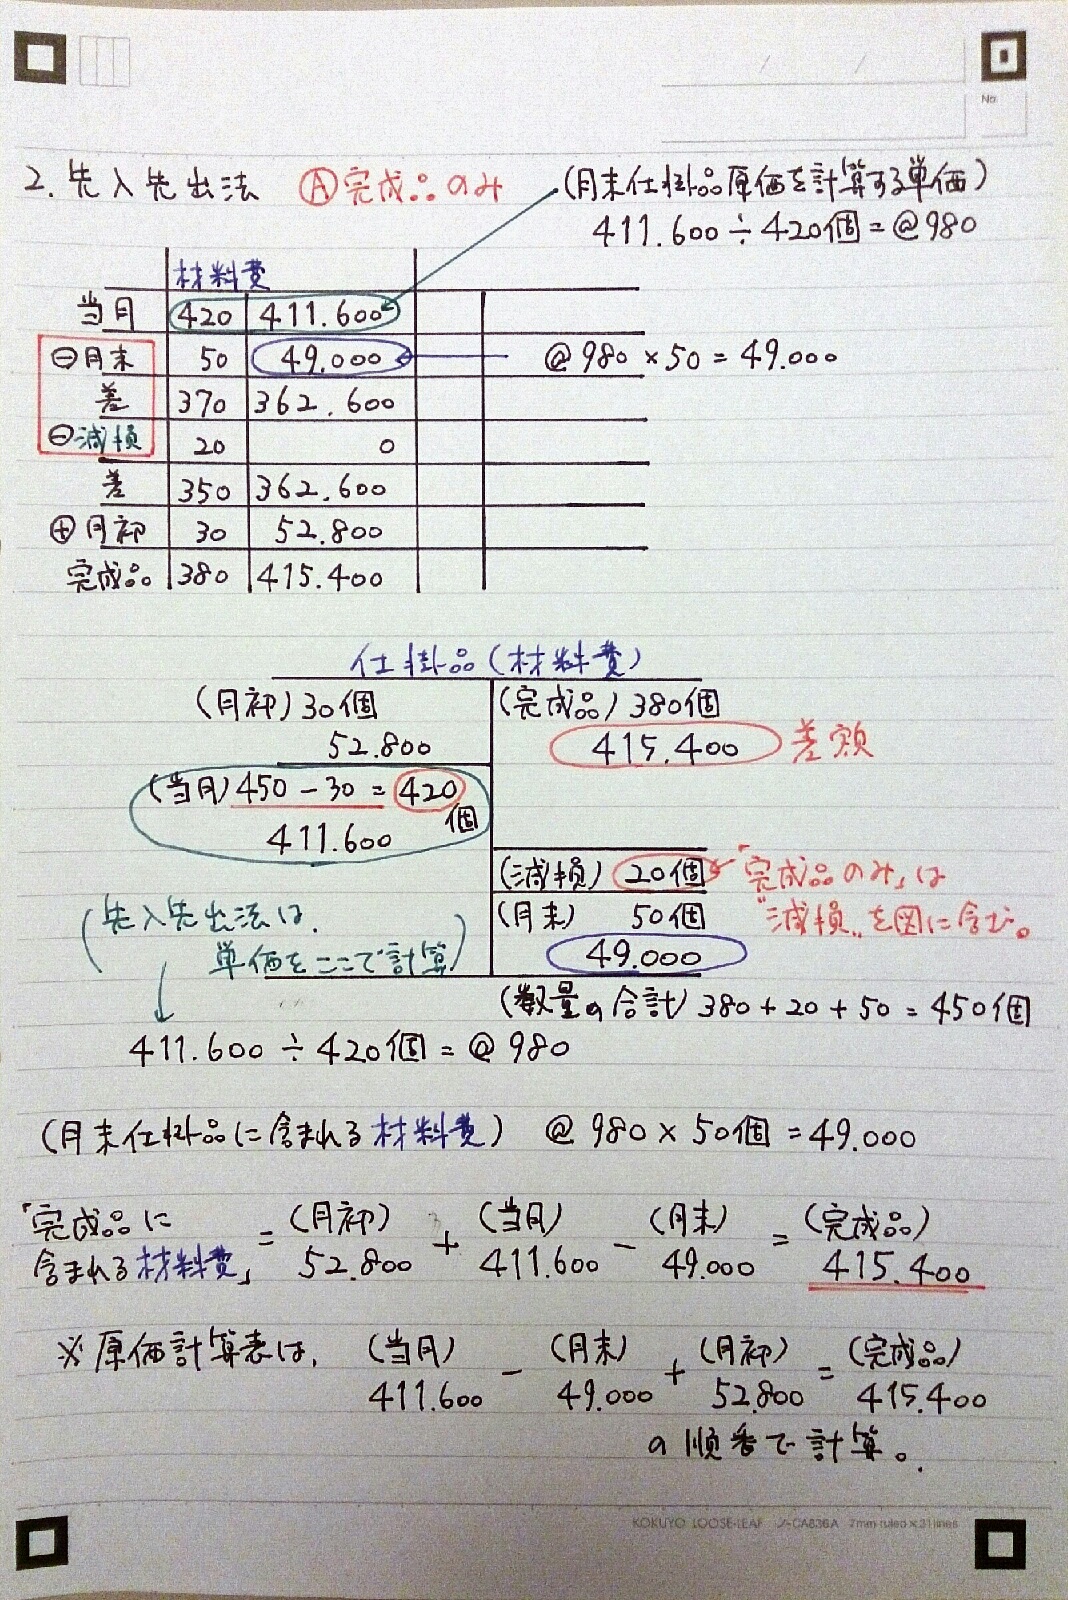 No.
2. 先入先出法 Ⓐ完成品のみ (月末仕掛品原価を計算する単価)
411.600÷420個=@980
材料費
当月 420 411.600
⊖月末 50 49.000 @980×50=49.000
差 370 362.600
⊖減損 20 0
差 350 362.600
⊕月初 30 52.800
完成品 380 415.400
仕掛品(材料費)
(月初)30個 (完成品)380個
52.800 415.400 差額
(当月)450-30=420個
411.600
(減損)20個 「完成品のみ」は
(月末) 50個 "減損"を図に含む。
49.000
(先入先出法は、
単価をここで計算)
(数量の合計)380+20+50=450個
411.600÷420個=@980
(月末仕掛品に含まれる材料費) @980×50個=49.000
「完成品に
含まれる材料費」 = (月初) + (当月) - (月末) = (完成品)
52.800 411.600 49.000 415.400
※原価計算表は、 (当月) - (月末) + (月初) = (完成品)
411.600 49.000 52.800 415.400
の順番で計算。
KOKUYO LOOSE-LEAF ノ-CA836A 7mm ruled×31lines